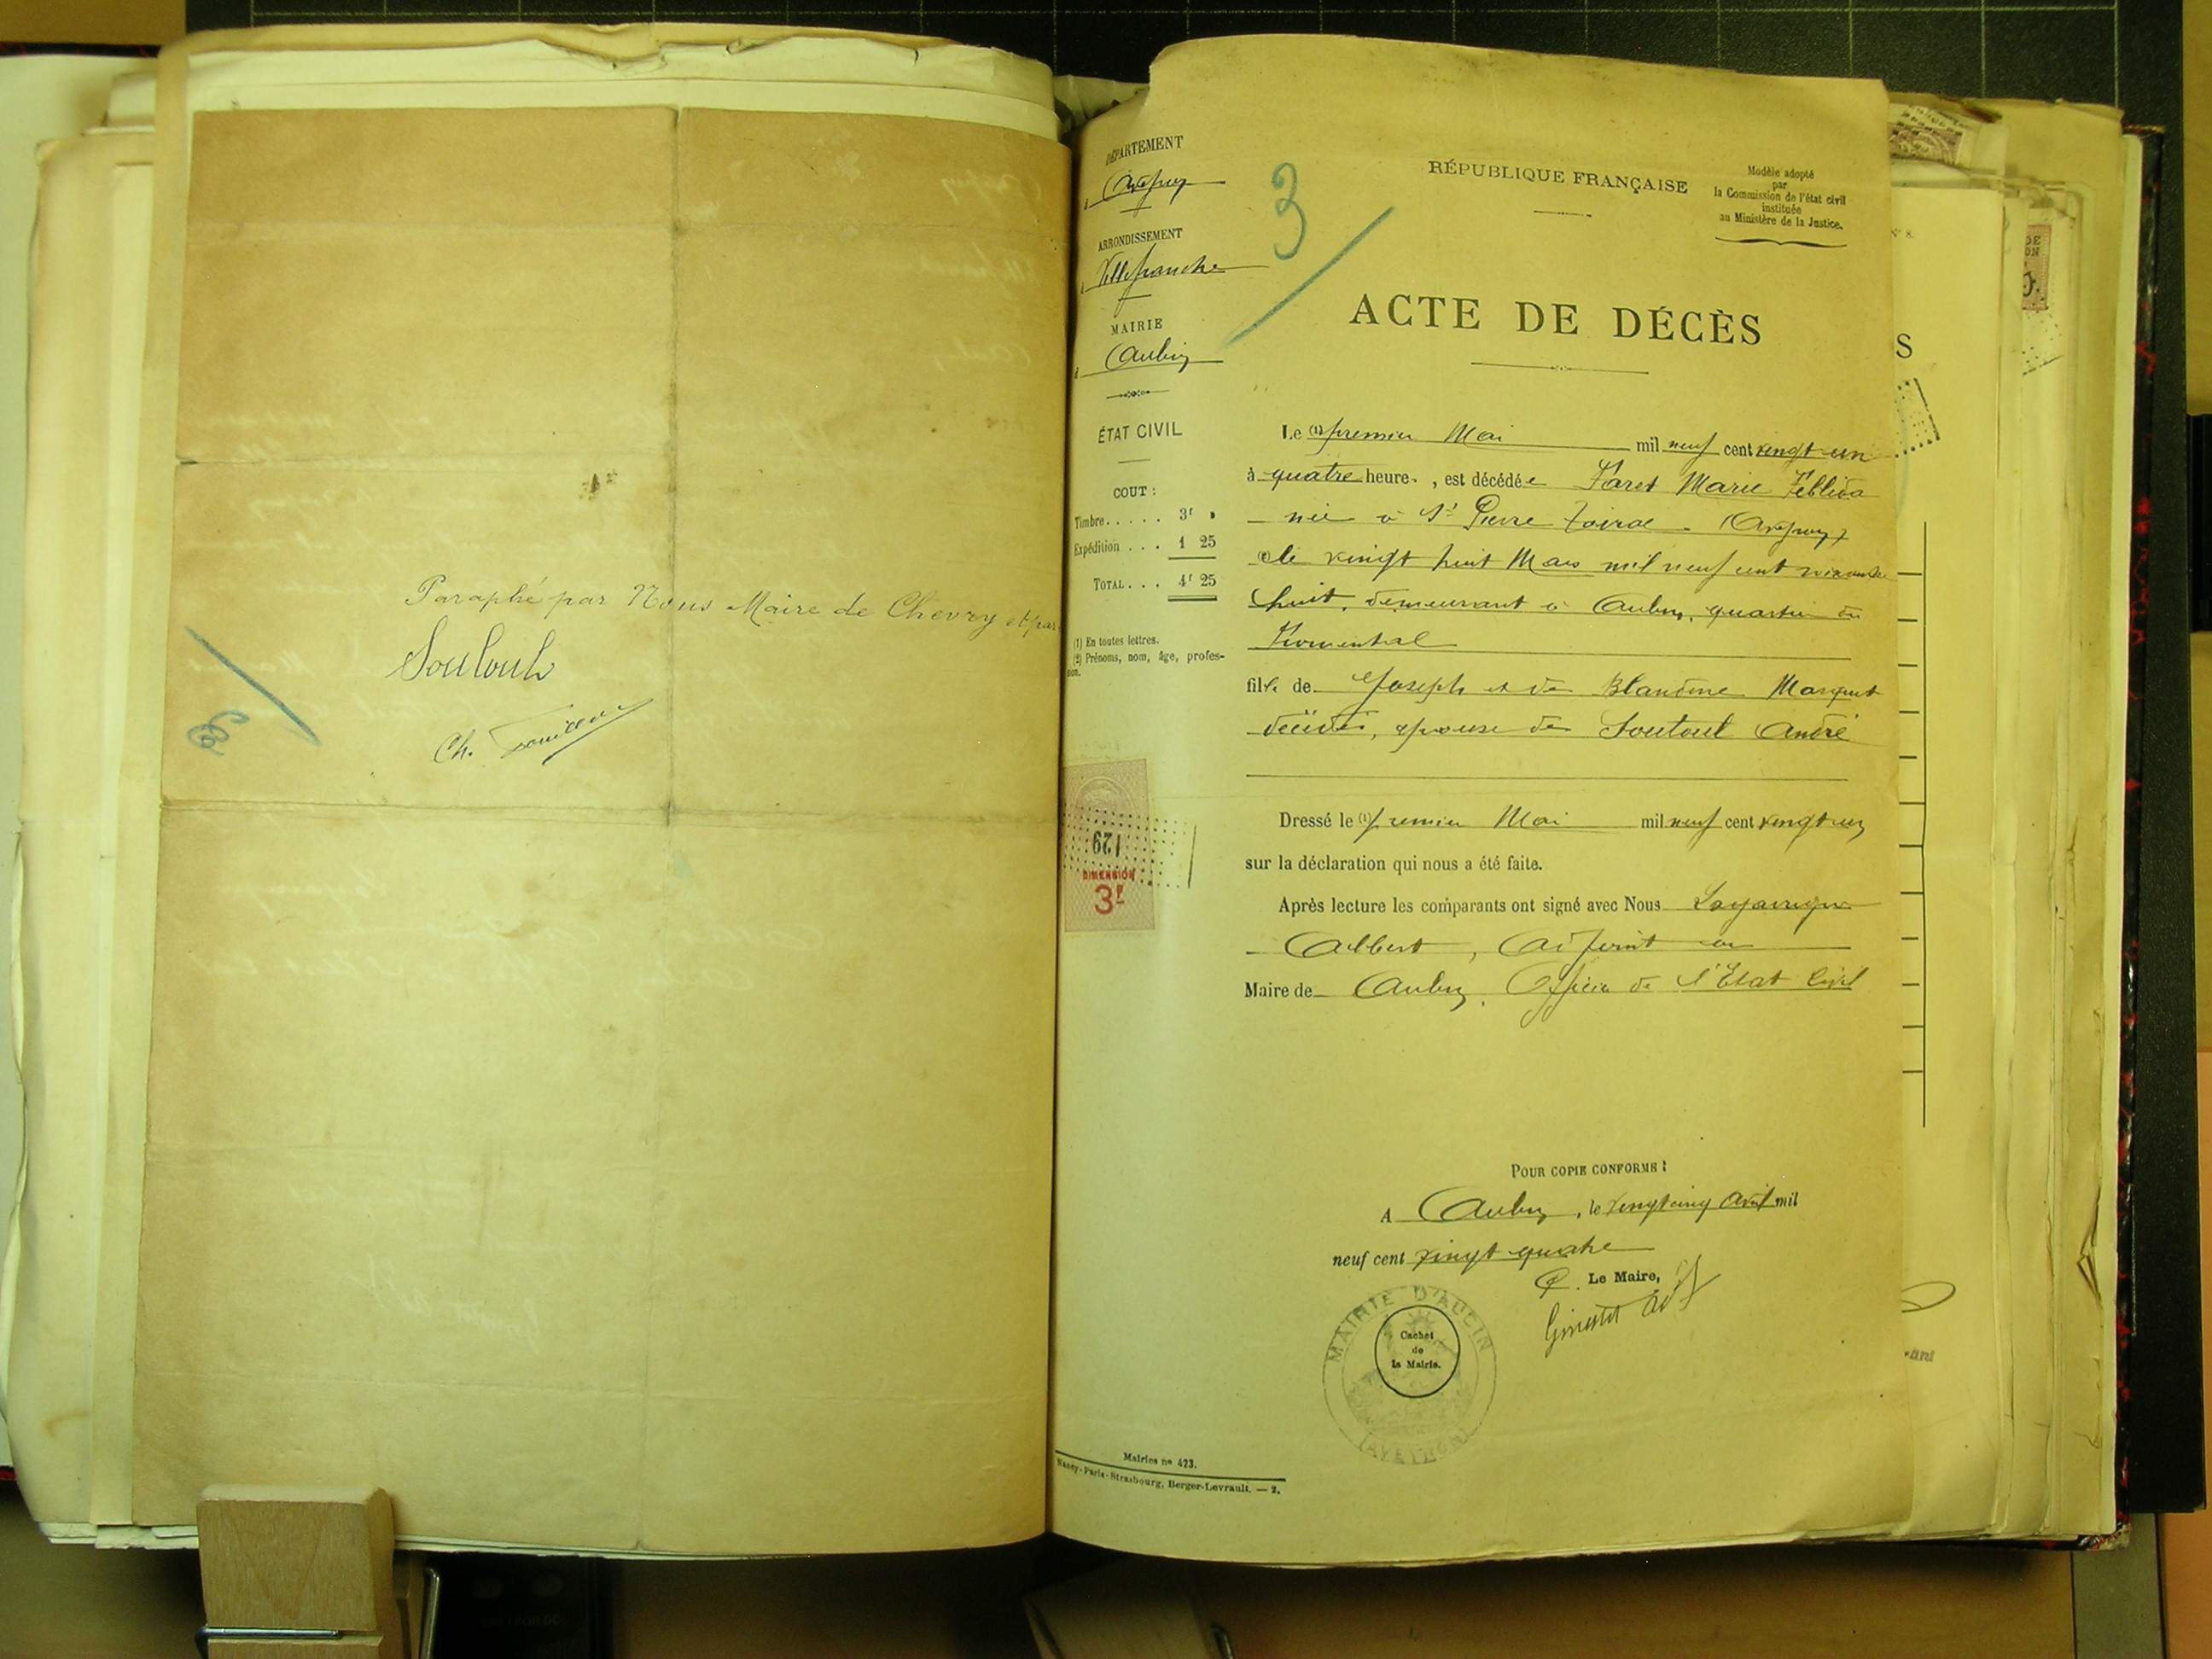 Paraphé par Nous Maire de Chevry et par
Soutoul
Ch.
3
DÉPARTEMENT
d Aveyron
ARRONDISSEMENT
d Villefranche
MAIRIE
d Aubin
ÉTAT CIVIL
COUT :
Timbre..... 3f »
Expédition... 1 25
TOTAL... 4f 25
(1) En toutes lettres.
(2) Prénoms, nom, âge, profes-
sion.
129
DIMENSION
3F
Mairies no 423.
Nancy-Paris-Strasbourg, Berger-Levrault. — 2.
RÉPUBLIQUE FRANÇAISE
Modèle adopté
par
la Commission de l'état civil
instituée
au Ministère de la Justice.
ACTE DE DÉCÈS
Le (1) premier Mai mil neuf cent vingt un
à quatre heure , est décédée Marie
née à St Pierre (Aveyron)
(2) le vingt huit Mars mil neuf cent soixante
huit, demeurant à Aubin, quartier du
fille de Joseph et de Blandine
décédés, épouse de Soutoul André
Dressé le (1) premier Mai mil neuf cent vingt un
sur la déclaration qui nous a été faite.
Après lecture les comparants ont signé avec Nous
Albert, Adjoint au
Maire de Aubin, Officier de l'Etat Civil
POUR COPIE CONFORME :
A Aubin, le vingt cinq Avril mil
neuf cent vingt quatre
Le Maire,
MAIRIE D'AUBIN
Cachet
de
la Mairie.
(AVEYRON)